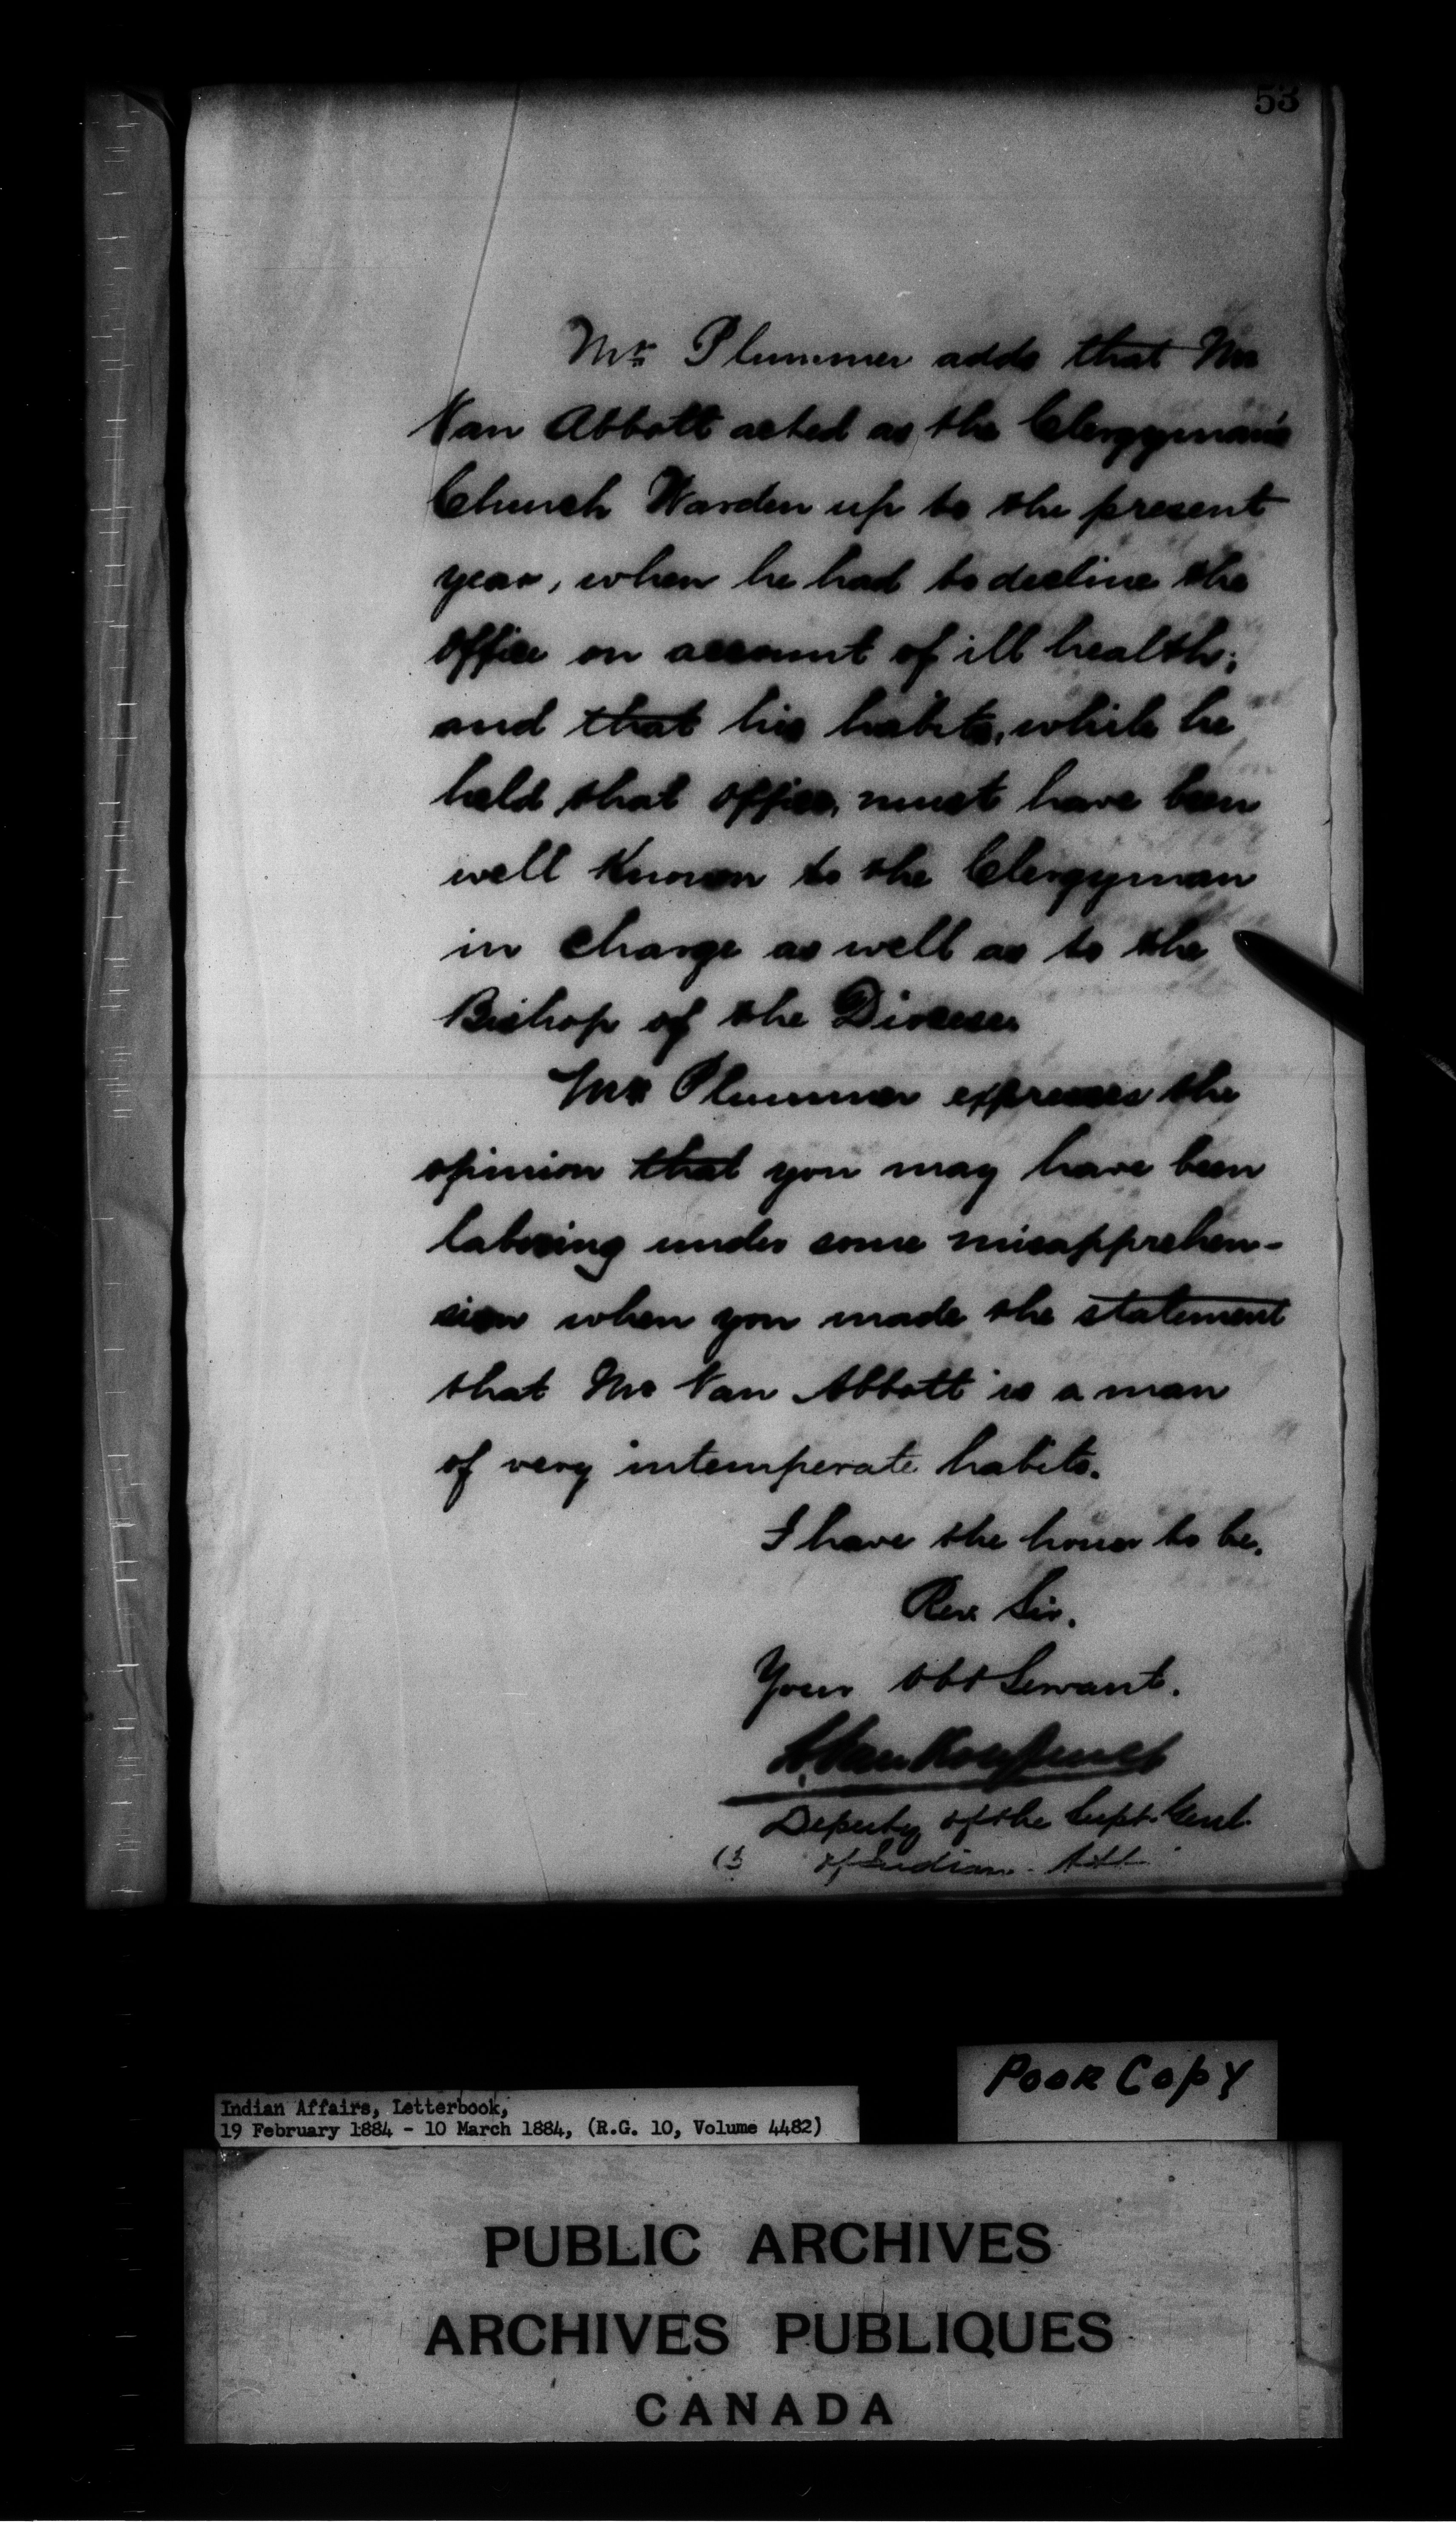 53
Mr. Plummer adds that Mr
Van Abbott acted as the Clergyman's
Church Warden up to the present
year, when he had to decline the
office on account of ill health;
and that his habits, while he
held that office, must have been
well known to the Clergyman
in charge as well as to the
Bishop of the Diocese.
Mr Plummer expresses the
opinion that you may have been
laboring under some misapprehen-
sion when you made the statement
that Mr Van Abbott is a man
of very intemperate habits.
I have the honor to be,
Rev. Sir,
Your obt Servant.
L. VanKoughnet
Deputy of the Supt. Genl.
of Indian Aff
Poor Copy
Indian Affairs, Letterbook,
19 February 1884 - 10 March 1884, (R.G. 10, Volume 4482)
PUBLIC ARCHIVES
ARCHIVES PUBLIQUES
CANADA